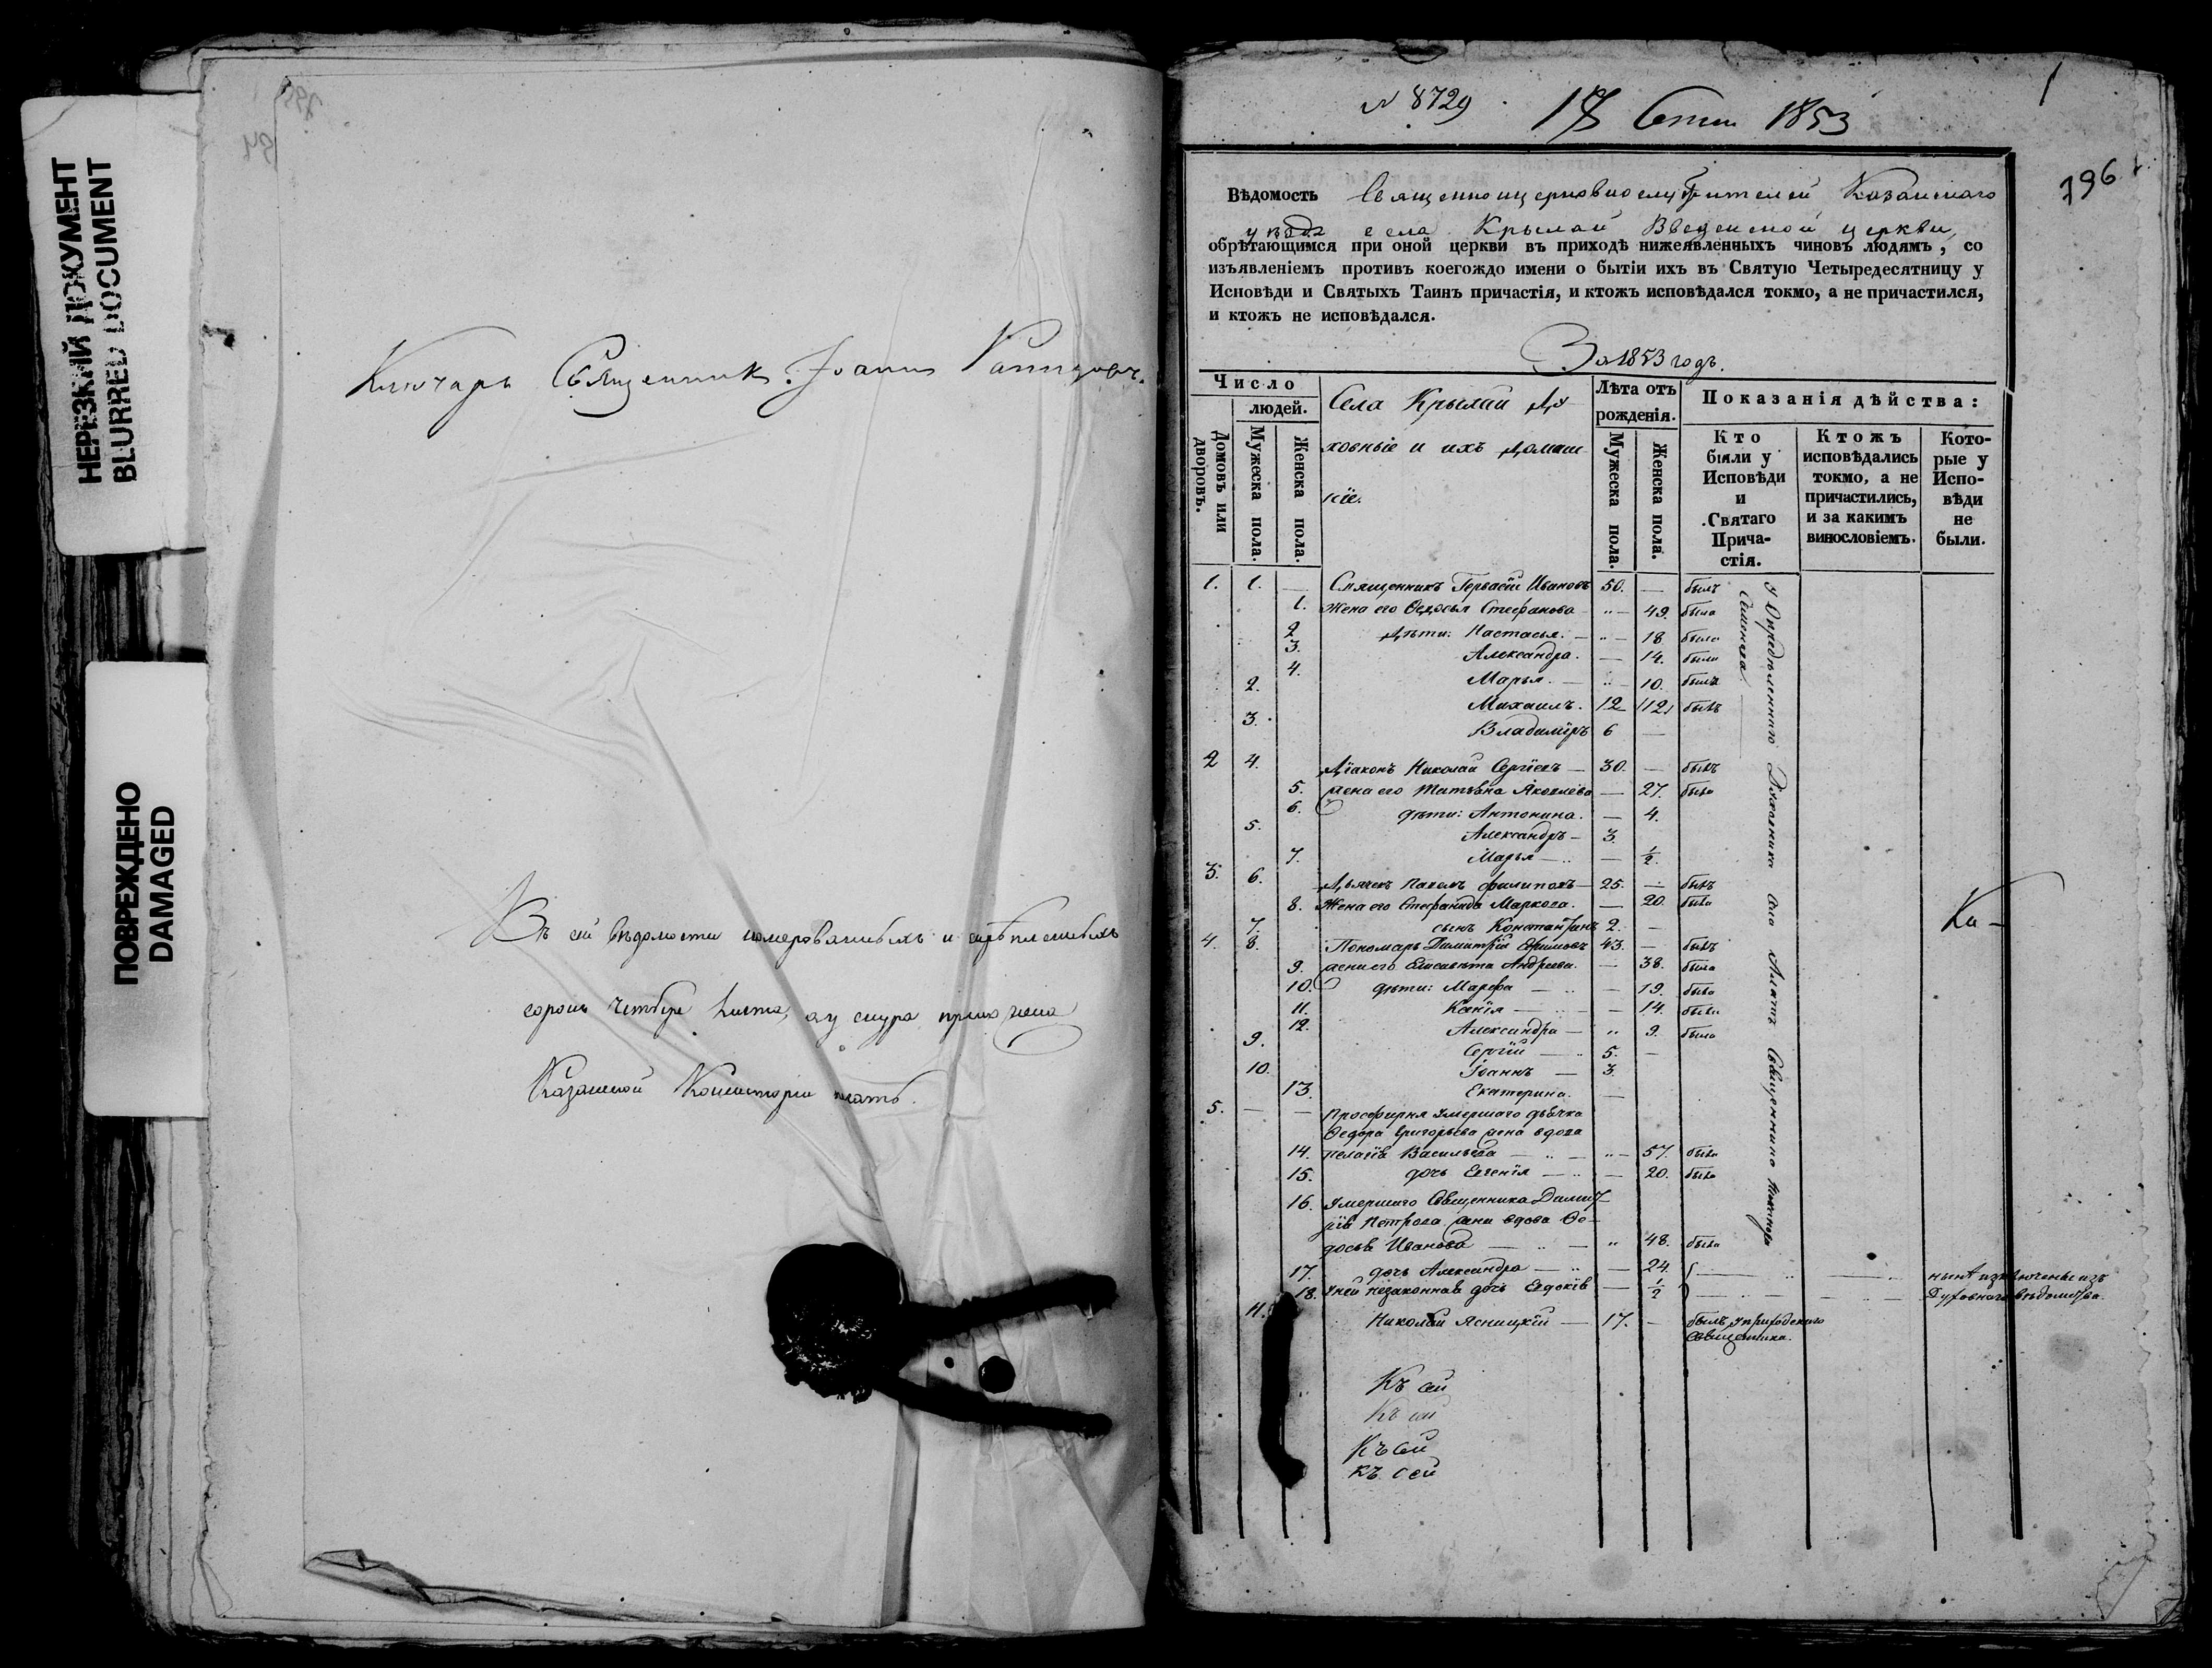 НЕРЕЗКИЙ ДОКУМЕНТ
BLURRED DOCUMENT
ПОВРЕЖДЕНО
DAMAGED
Ключарь Священник Іоанн
Въ сей вѣдомости номерованныхъ и скрѣпленныхъ
сорокъ четыре листа, а у снура приложена
Казанской Консисторіи печать.
N 8729
17 Сент 1853
1
796
Вѣдомость Священноцерковнослужителей Казанскаго
уѣзда села Крылай Введенской церкви,
обрѣтающимся при оной церкви въ приходѣ нижеявленныхъ чиновъ людямъ, со
изъявленіемъ противъ коегождо имени о бытіи ихъ въ Святую Четыредесятницу у
Исповѣди и Святыхъ Таинъ причастія, и ктожъ исповѣдался токмо, а не причастился,
и ктожъ не исповѣдался.
За 1853 годъ.
Число
людей.
Домовъ или дворовъ.
Мужеска пола.
Женска пола.
Села Крылай Ду
ховные и ихъ домаш
ніе.
Лѣта отъ рожденія.
Мужеска пола.
Женска пола.
Показанія дѣйства:
Кто были у Исповѣди и Святаго Прича-стія.
Ктожъ исповѣдались токмо, а не причастились, и за какимъ винословіемъ.
Кото-рые у Испо-вѣди не были.
1. 1. — Священникъ Гервасій Ивановъ 50. — былъ
1. Жена его Ѳедосья Стефанова — 49. была
2 Дѣти: Настасья. — 18. была
3. Александра. — 14. была
4. Марья. — 10. была
2. Михаилъ. 12 былъ
3. Владиміръ 6 —
2 4. Діаконъ Николай Сергіевъ — 30. — былъ
5. жена его Татьяна Яковлева — 27. была
6. дѣти: Антонина. — 4.
5. Александръ — 3.
7. Марья — 1/2.
3. 6. Дьячекъ Павелъ Филиповъ — 25. — былъ
8. Жена его Стефанида Маркова. — 20. была
7. сынъ Константинъ 2. —
4. 8. Пономарь Димитрій Ефимовъ 43. — былъ
9. жена его Елисавета Андреева. — 38. была
10. дѣти: Марфа — 19. была
11. Ксенія — 14. была
12. Александра — 9. была
9. Сергій — 5. —
10. Іоаннъ — 3.
13. Екатерина. —
5. — — Просфирня умершаго дьячка
Ѳедора Григорьева жена вдова
14. Пелагія Васильева — 57. была
15. дочь Евгенія — 20. была
16. Умершаго Священника Димит
рія Петрова жена вдова Ѳе-
досья Иванова — 48. была
17. дочь Александра — 24.
18. у ней незаконная дочь Евдокія — 1/2
нынѣ изключены изъ
Духовнаго вѣдомства.
11. Николай Ясницкій — 17. — былъ у приходскаго
Священника.
Ка —
Къ сей
Къ сей
Къ сей
Къ сей